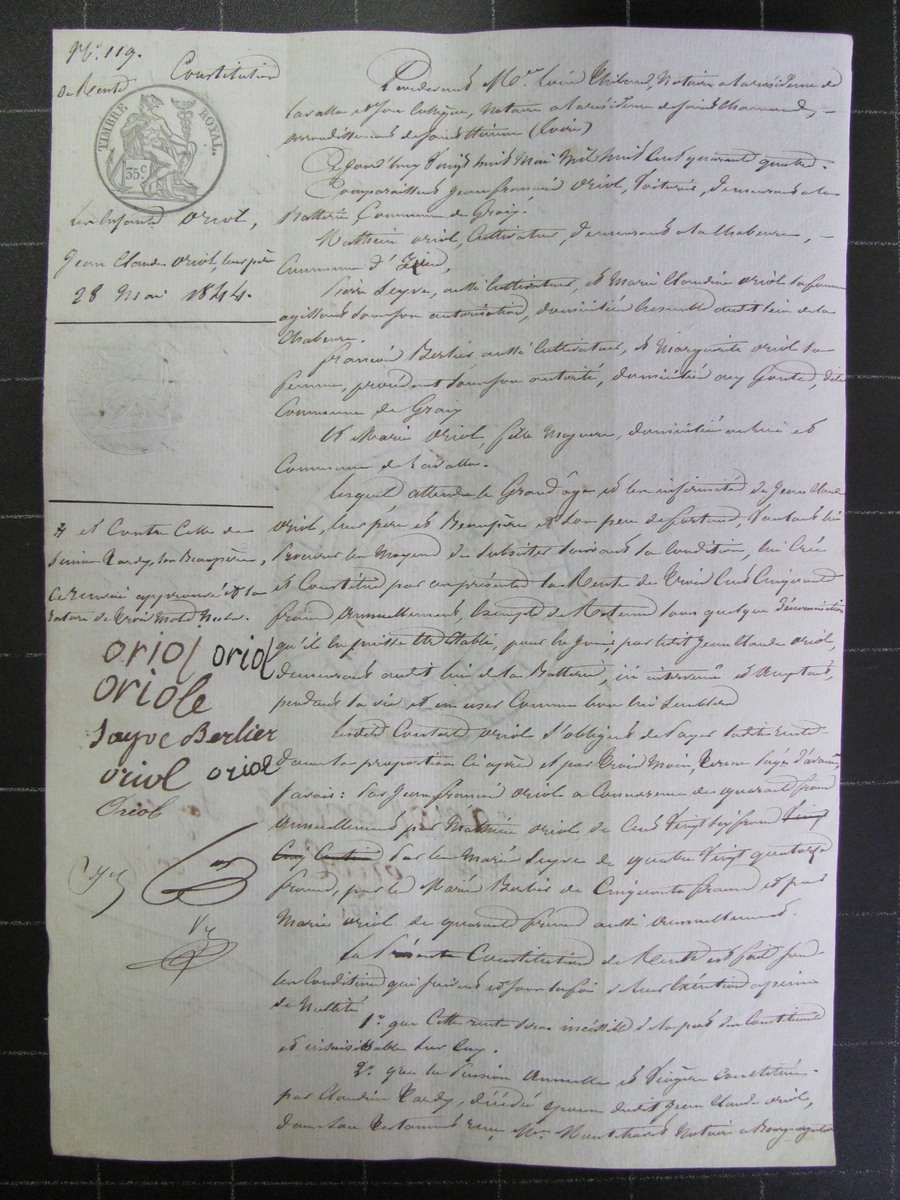 N°. 119.
Constitution
de Rente
TIMBRE ROYAL.
35 c.
les enfants Oriol,
Jean Claude Oriol, leur père
28 Mai 1844.
et Contre Celle de
son Beaupère,
Ce renvoi approuvé et la
rature de trois mots nuls.
oriol oriol
oriole
Sayve Berlier
oriol oriol
Oriol
Pardevant Me. Thibaud, Notaire a la résidence de
Lavalla et son Collègue, Notaire a la résidence de Saint Chamond,
arrondissement de Saint Etienne (Loire)
Cejourd'huy Vingt huit Mai Mil huit Cent quarante quatre.
Comparaissent Jean François Oriol, Voiturier, demeurant a la
Batterie, Commune de Graix.
Mathieu Oriol, Cultivateur, demeurant a la Chabeure,
Commune d'Izieu,
Pierre Seyve, aussi Cultivateur, et Marie Claudine Oriol sa femme
agissant sous son autorisation, domiciliés ensemble audit lieu de la
Chabeure.
François Berlier aussi Cultivateur, et Marguerite Oriol sa
femme, procédant sous son autorité, domiciliés dite
Commune de Graix
Et Marie Oriol, fille Majeure, domiciliée
Commune de Lavalla.
Lesquels attendu le Grand âge et les infirmités de Jean Claude
Oriol, leur père et Beaupère et son peu de fortune, Voulant lui
Procurer les Moyens de subsister suivant sa Condition, lui Crée
et Constitue par ces présentes la Rente de Trois Cent Cinquante
francs Annuellement, Exempte de Retenue sous quelque dénomination
qu'il en puisse être établi, pour en jouir, par ledit Jean Claude Oriol,
demeurant audit lieu de la Batterie, ici intervenu et acceptant,
pendant sa vie et en user Comme bon lui semblera
Lesdits Consorts Oriol s'obligent de Payer ladite rente
dans la proportion Ci après et par Trois Mois, Terme Payé d'avance,
savoir : Par Jean François Oriol a Concurrence de quarante francs
Annuellement par Mathieu Oriol de Cent Vingt six francs Vingt
Cinq Centimes Par les Mariés Seyve de quatre Vingt quatorze
francs, par les Mariés Berlier de Cinquante francs et par
Marie Oriol de quarante francs aussi Annuellement.
La Présente Constitution de Rente est faite sous
les Conditions qui suivent et sous la foi de leur Exécution a peine
de Nullité
1°. que Cette rente sera incessible de la part du Constitué
et insaisissable sur Luy.
2°. que la Pension Annuelle et Viagère Constituée
par Claudine décédée épouse dudit Jean Claude Oriol,
dans son Testament reçu Me. Notaire a Bourg argental